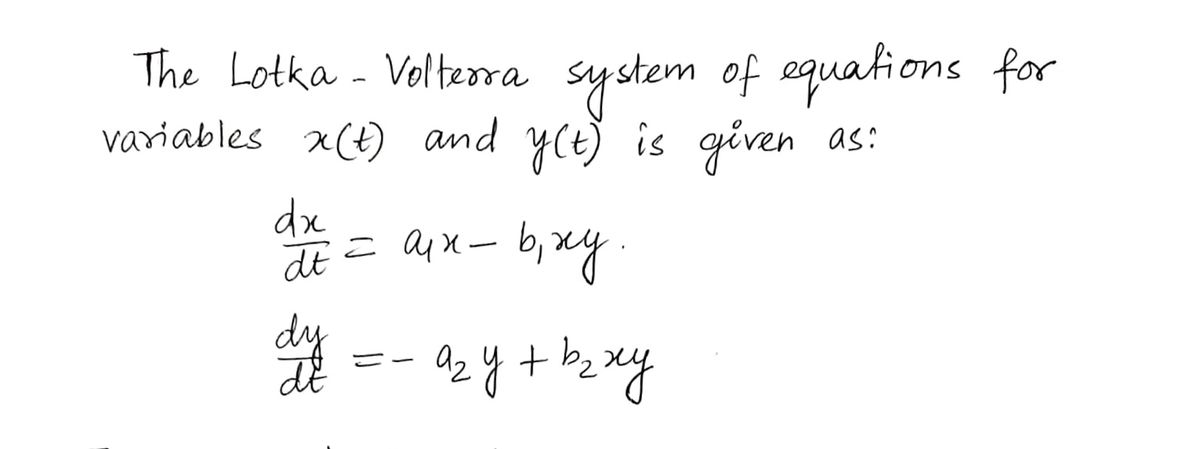 The Lotka - Volterra system of equations for
variables x(t) and y(t) is given as:
dx/dt = a₁x - b₁xy.
dy/dt = - a₂y + b₂xy